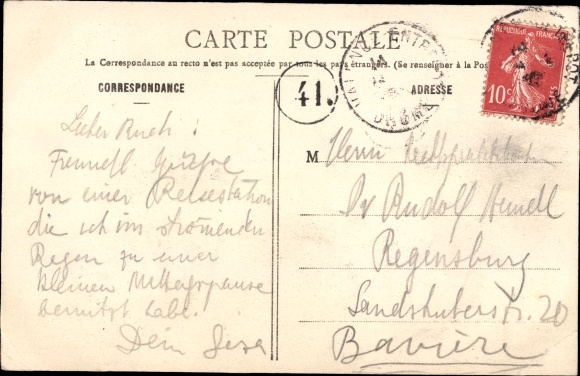 CARTE POSTALE
La Correspondance au recto n'est pas acceptée par tous les pays étrangers. (Se renseigner à la Poste
CORRESPONDANCE
41.
ADRESSE
RÉPUBLIQUE FRANÇAISE
10c
DRÔME
Lieber Rudi!
Freundl Grüsse
von einer Reisestation
die ich im strömenden
Regen zu einer
kleinen Mittagspause
benützt habe.
Dein
M Herrn
Dr Rudolf
Regensburg
Landshuterstr. 20
Bavière